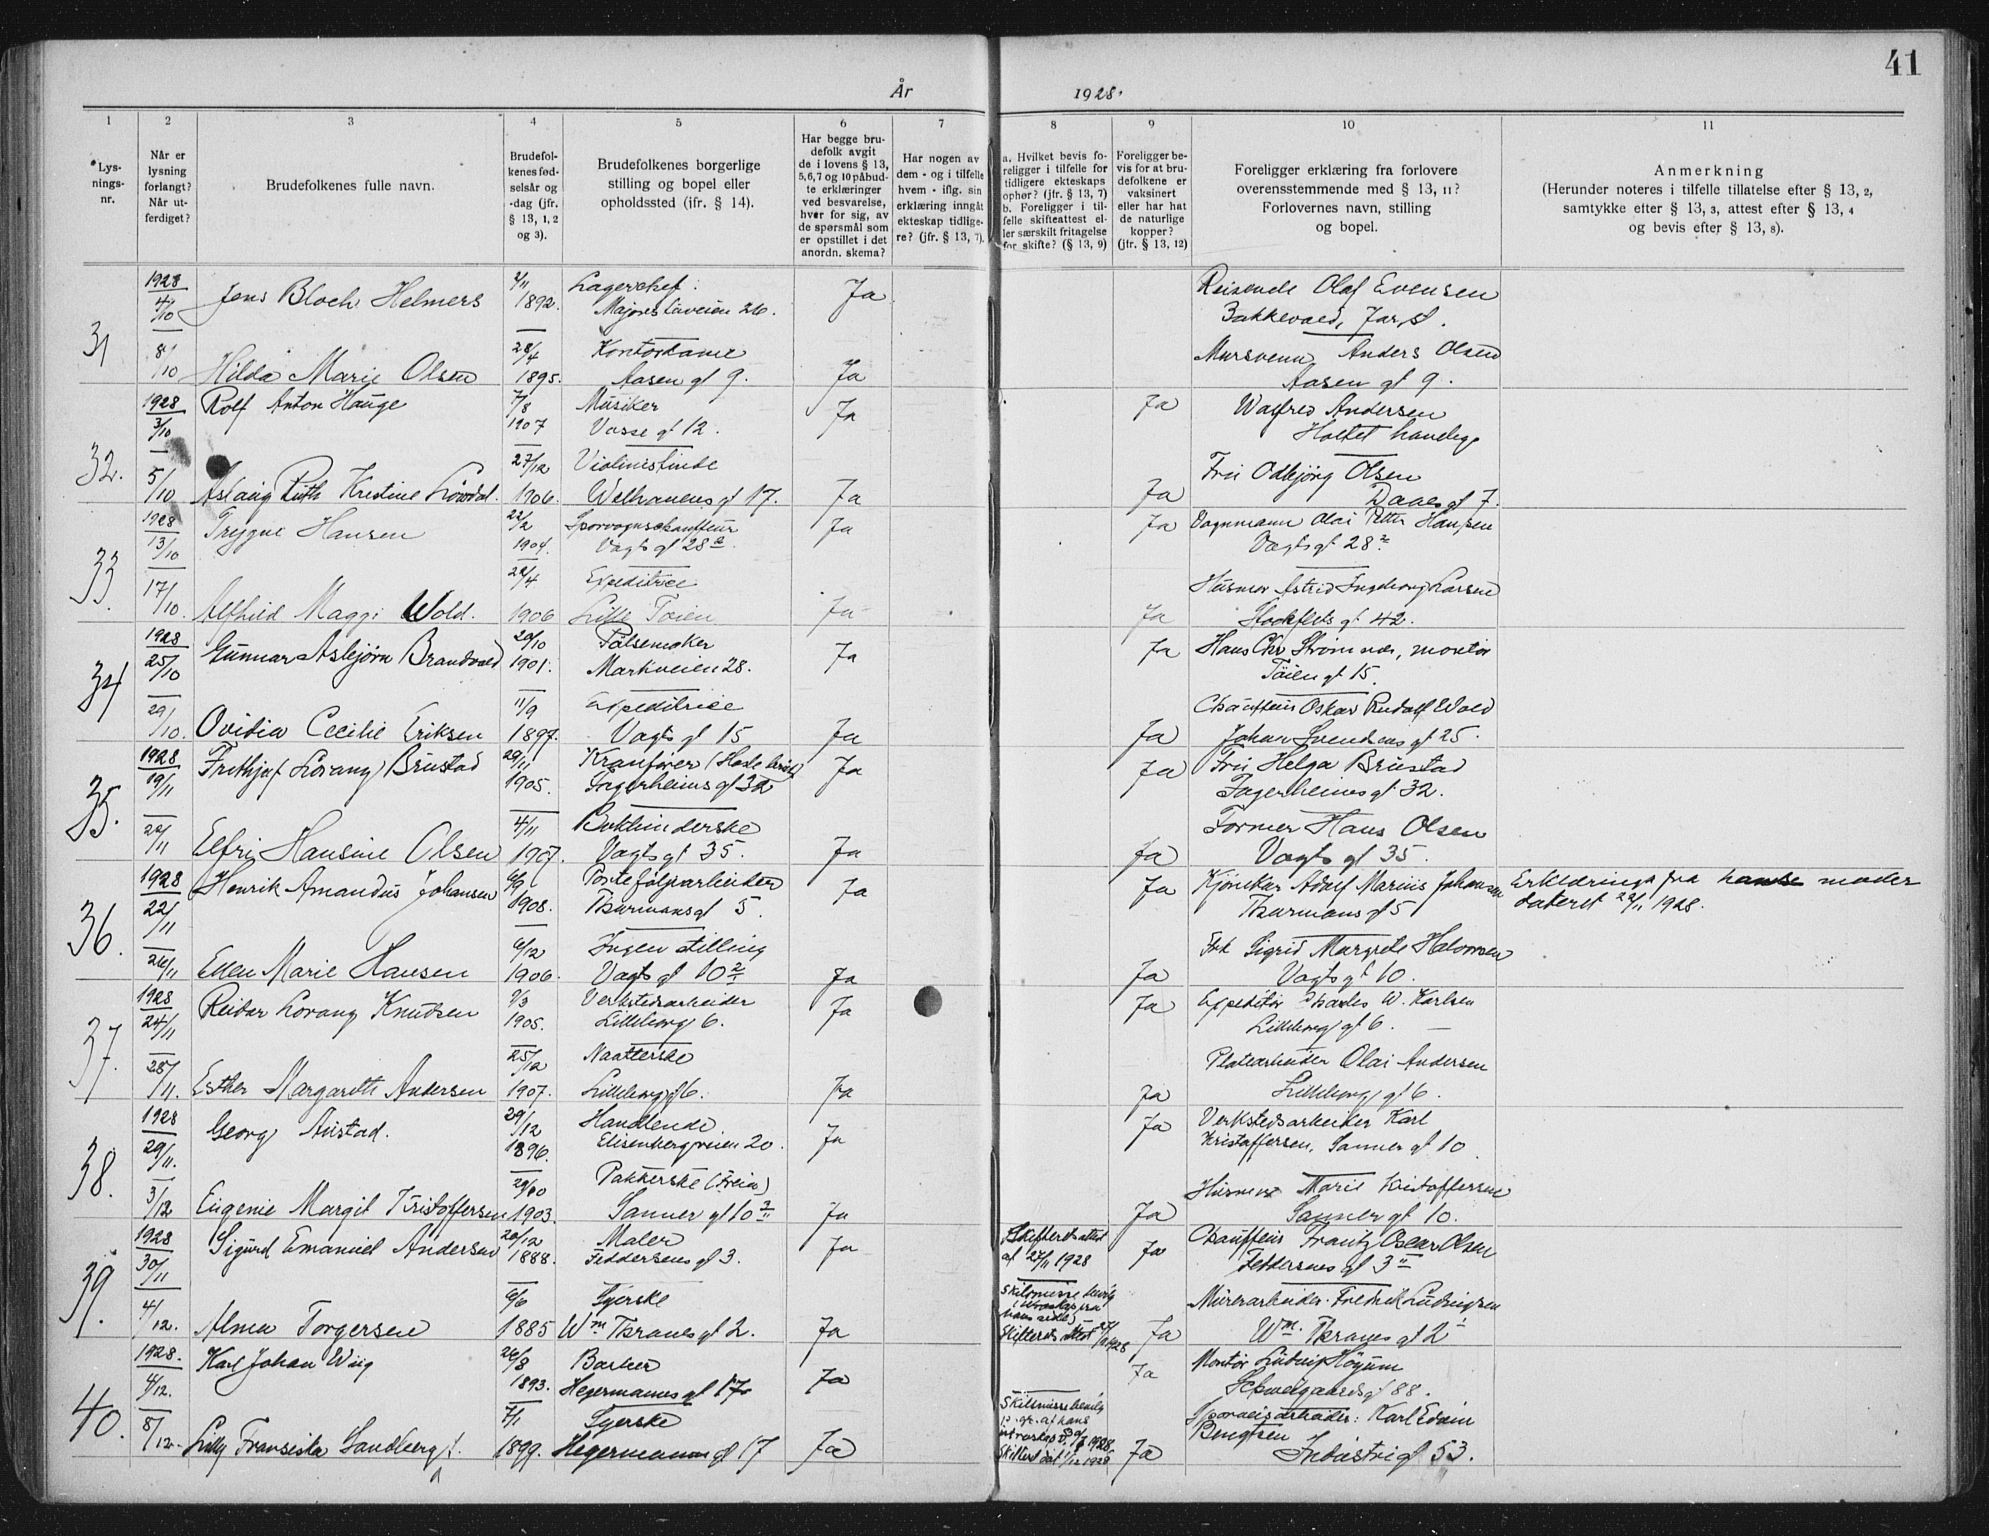 41
År 1928.
1 2 3 4 5 6 7 8 9 10 11
*Lys-
nings-
nr.
Når er
lysning
forlangt?
Når ut-
ferdiget?
Brudefolkenes fulle navn.
Brudefol-
kenes fød-
selsår og
-dag (jfr.
§ 13, 1, 2
og 3).
Brudefolkenes borgerlige
stilling og bopel eller
opholdssted (ifr. § 14).
Har begge bru-
defolk avgit
de i lovens § 13,
5,6,7 og 10 påbud-
te erklæringer
ved besvarelse,
hver for sig, av
de spørsmål som
er opstillet i det
anordn. skema?
Har nogen av
dem - og i tilfelle
hvem - iflg. sin
erklæring inngåt
ekteskap tidlige-
re? (jfr. § 13, 7).
a. Hvilket bevis fo-
religger i tilfelle for
tidligere ekteskaps
ophør? (jfr. § 13, 7)
b. Foreligger i til-
felle skifteattest el-
ler særskilt fritagelse
for skifte? (§ 13, 9)
Foreligger be-
vis for at bru-
defolkene er
vaksinert
eller har hat
de naturlige
kopper?
(jfr. § 13, 12)
Foreligger erklæring fra forlovere
overensstemmende med § 13, 11?
Forlovernes navn, stilling
og bopel.
Anmerkning
(Herunder noteres i tilfelle tillatelse efter § 13, 2,
samtykke efter § 13, 3, attest efter § 13, 4
og bevis efter § 13, 8).
31
1928 4/10 Jens Bloch Helmers 2/11 1892. Lagerchef. Ja Reisende Olaf Evensen
Majorstuveien 26.
8/10 Hilda Marie Olsen 28/4 1895. Kontordame Ja Anders Olsen
Aasen gt 9. Aasen gt 9.
32.
1928 3/10 Rolf Anton Hauge 7/8 1907 Musiker Ja Ja Walfred Andersen
Vosse gt 12.
5/10 Aslaug Ruth Kristine 27/12 1906. Violinistinde Ja Ja Fru Odbjörg Olsen
Welhavens gt 17. Daaes gt 7.
33.
1928 13/10 Trygve Hansen 22/2 1904. Sporvognschauffeur Ja Ja Vognmann Olai Petter Hansen
Vogts gt 28 Vogts gt 28
17/10. Alfhild Maggi Wold. 22/4 1906 Expeditrice Ja Ja Husmor Astrid Ingeborg Larsen
Lille Töien Stockflets gt 42.
34
1928 25/10 Gunnar Asbjørn Brandvold 20/10 1901. Pølsemaker Ja Ja Hans Chr Strømnæs, montör
Markveien 28. Töien gt 15.
29/10. Ovidia Cecilie Eriksen 11/9 1897. Expeditrice Ja Ja Chauffeur Oskar Rudolf Wold
Vogts gt 15 Johan Svendsens gt 25.
35.
1928 19/11 Frithjof Lorang Brustad 29/11 1905. Kranfører Ja Ja Fru Helga Brustad
Fagerheims gt 32 Fagerheims gt 32.
22/11 Elfri Hansine Olsen 4/11 1907. Bokbinderske Ja Ja Former Hans Olsen
Vogts gt 35. Vogts gt 35.
36.
1928 22/11 Henrik Amandus Johansen 6/9 1908. Porteföljearbeider Ja Ja Adolf Marius Johansen Erklæring fra moder
Thurmans gt 5. Thurmans gt 5 datert 22/11 1928.
26/11 Ellen Marie Hansen 6/12 1906. Ingen stilling Ja Ja Frk Sigrid Margrete Halvorsen
Vogts gt 10 Vogts gt 10.
37.
1928 24/11 Reidar Lorang Knudsen 9/3 1905. Verkstedsarbeider Ja Ja Expeditör Charles W. Karlsen
Lilleborg 6. Lilleborg gt 6.
28/11. Esther Margareth Andersen 25/12 1907. Naatterske Ja Ja Platearbeider Olai Andersen
Lilleborg gt 6. Lilleborg gt 6.
38.
1928 29/11. Georg Austad. 29/12 1896. Handlende Ja Ja Verkstedsarbeider Karl
Elisenbergveien 20. Kristoffersen, Sanner gt 10
3/12 Eugenie Margit Kristoffersen 29/10 1903. Pakkerske (Freia) Ja Ja Husmor Marie Kristoffersen
Sanner gt 10 Sanner gt 10.
39.
1928 30/11 Sigurd Emanuel Andersen 20/12 1888. Maler Ja Skifteretsattest Ja Chauffeur Frantz Oscar Olsen
Feddersens gt 3. af 27/11 1928 Feddersens gt 3
4/12. Alma Torgersen 6/6 1885 Syerske Ja Skilsmisse bevilg Ja Murerarbeider Fredrik Ludvigsen
Wm Thranes gt 2. Skifterets attest Wm. Thranes gt 2
40.
1928. 4/12. Karl Johan Wiig 26/8 1893. Barber Ja Ja Montör Ludvig Höyum
Hegermanns gt 17 Schweigaards gt 88.
8/12. Lilly Fransiska Sandberg f. 7/1 1899. Syerske Ja Skilsmisse bevilg Ja Sporveisarbeider: Karl Edvin
Hegermanns gt 17 Bengtsen
Industri gt 53.